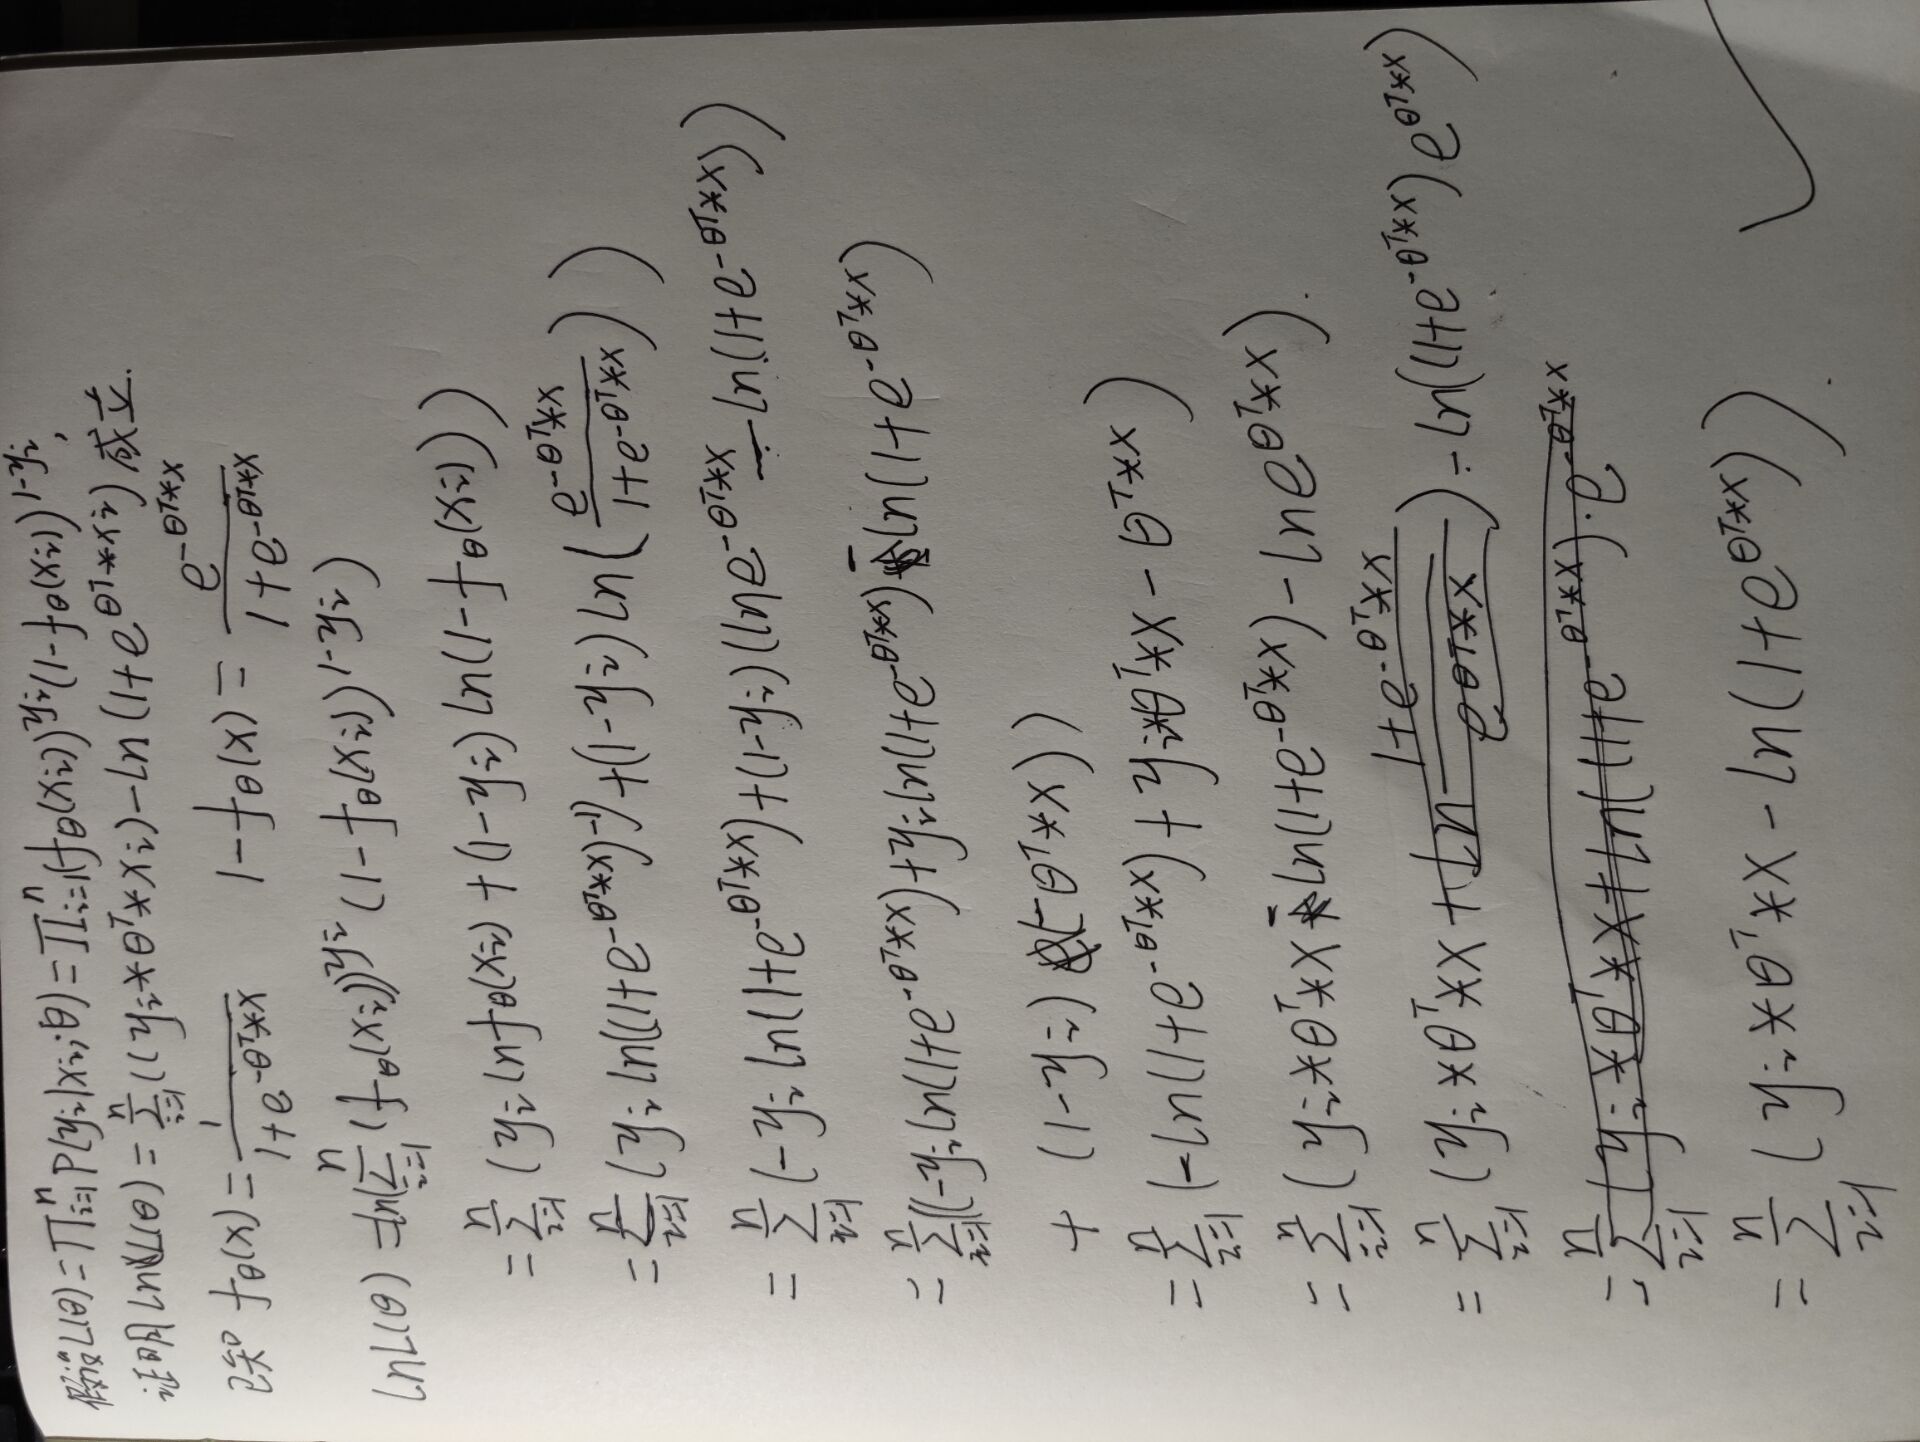 假设L(θ)=∏ⁿᵢ₌₁P(yᵢ|xᵢ;θ)=∏ⁿᵢ₌₁(fθ(xᵢ))^yᵢ(1-fθ(xᵢ))^1-yᵢ,
证明lnL(θ)=∑ⁿᵢ₌₁(yᵢ*θᵀ*xᵢ)-ln(1+e^θᵀ*xᵢ)成立.
已知 fθ(x)=1/(1+e^-θᵀ*x) 1-fθ(x)=e^-θᵀ*x/(1+e^-θᵀ*x)
lnL(θ)=ln∑ⁿᵢ₌₁(fθ(xᵢ))^yᵢ(1-fθ(xᵢ))^1-yᵢ)
=∑ⁿᵢ₌₁(yᵢlnfθ(xᵢ)+(1-yᵢ)ln(1-fθ(xᵢ)))
=∑ⁿᵢ₌₁(yᵢln((1+e^-θᵀ*x)^-1)+(1-yᵢ)ln(e^-θᵀ*x/(1+e^-θᵀ*x)))
=∑ⁿᵢ₌₁(-yᵢln(1+e^-θᵀ*x)+(1-yᵢ)(lne^-θᵀ*x-ln(1+e^-θᵀ*x))
=∑ⁿᵢ₌₁(-yᵢln(1+e^-θᵀ*x)+yᵢln(1+e^-θᵀ*x)-ln(1+e^-θᵀ*x)
+(1-yᵢ)(-θᵀ*x))
=∑ⁿᵢ₌₁(-ln(1+e^-θᵀ*x)+yᵢ*θᵀ*x-θᵀ*x)
=∑ⁿᵢ₌₁(yᵢ*θᵀ*x-ln(1+e^-θᵀ*x)-lne^θᵀ*x).
=∑ⁿᵢ₌₁(yᵢ*θᵀ*x+)÷ln((1+e^-θᵀ*x)e^θᵀ*x)
=∑ⁿᵢ₌₁(yᵢ*θᵀ*x-ln(1+e^θᵀ*x))